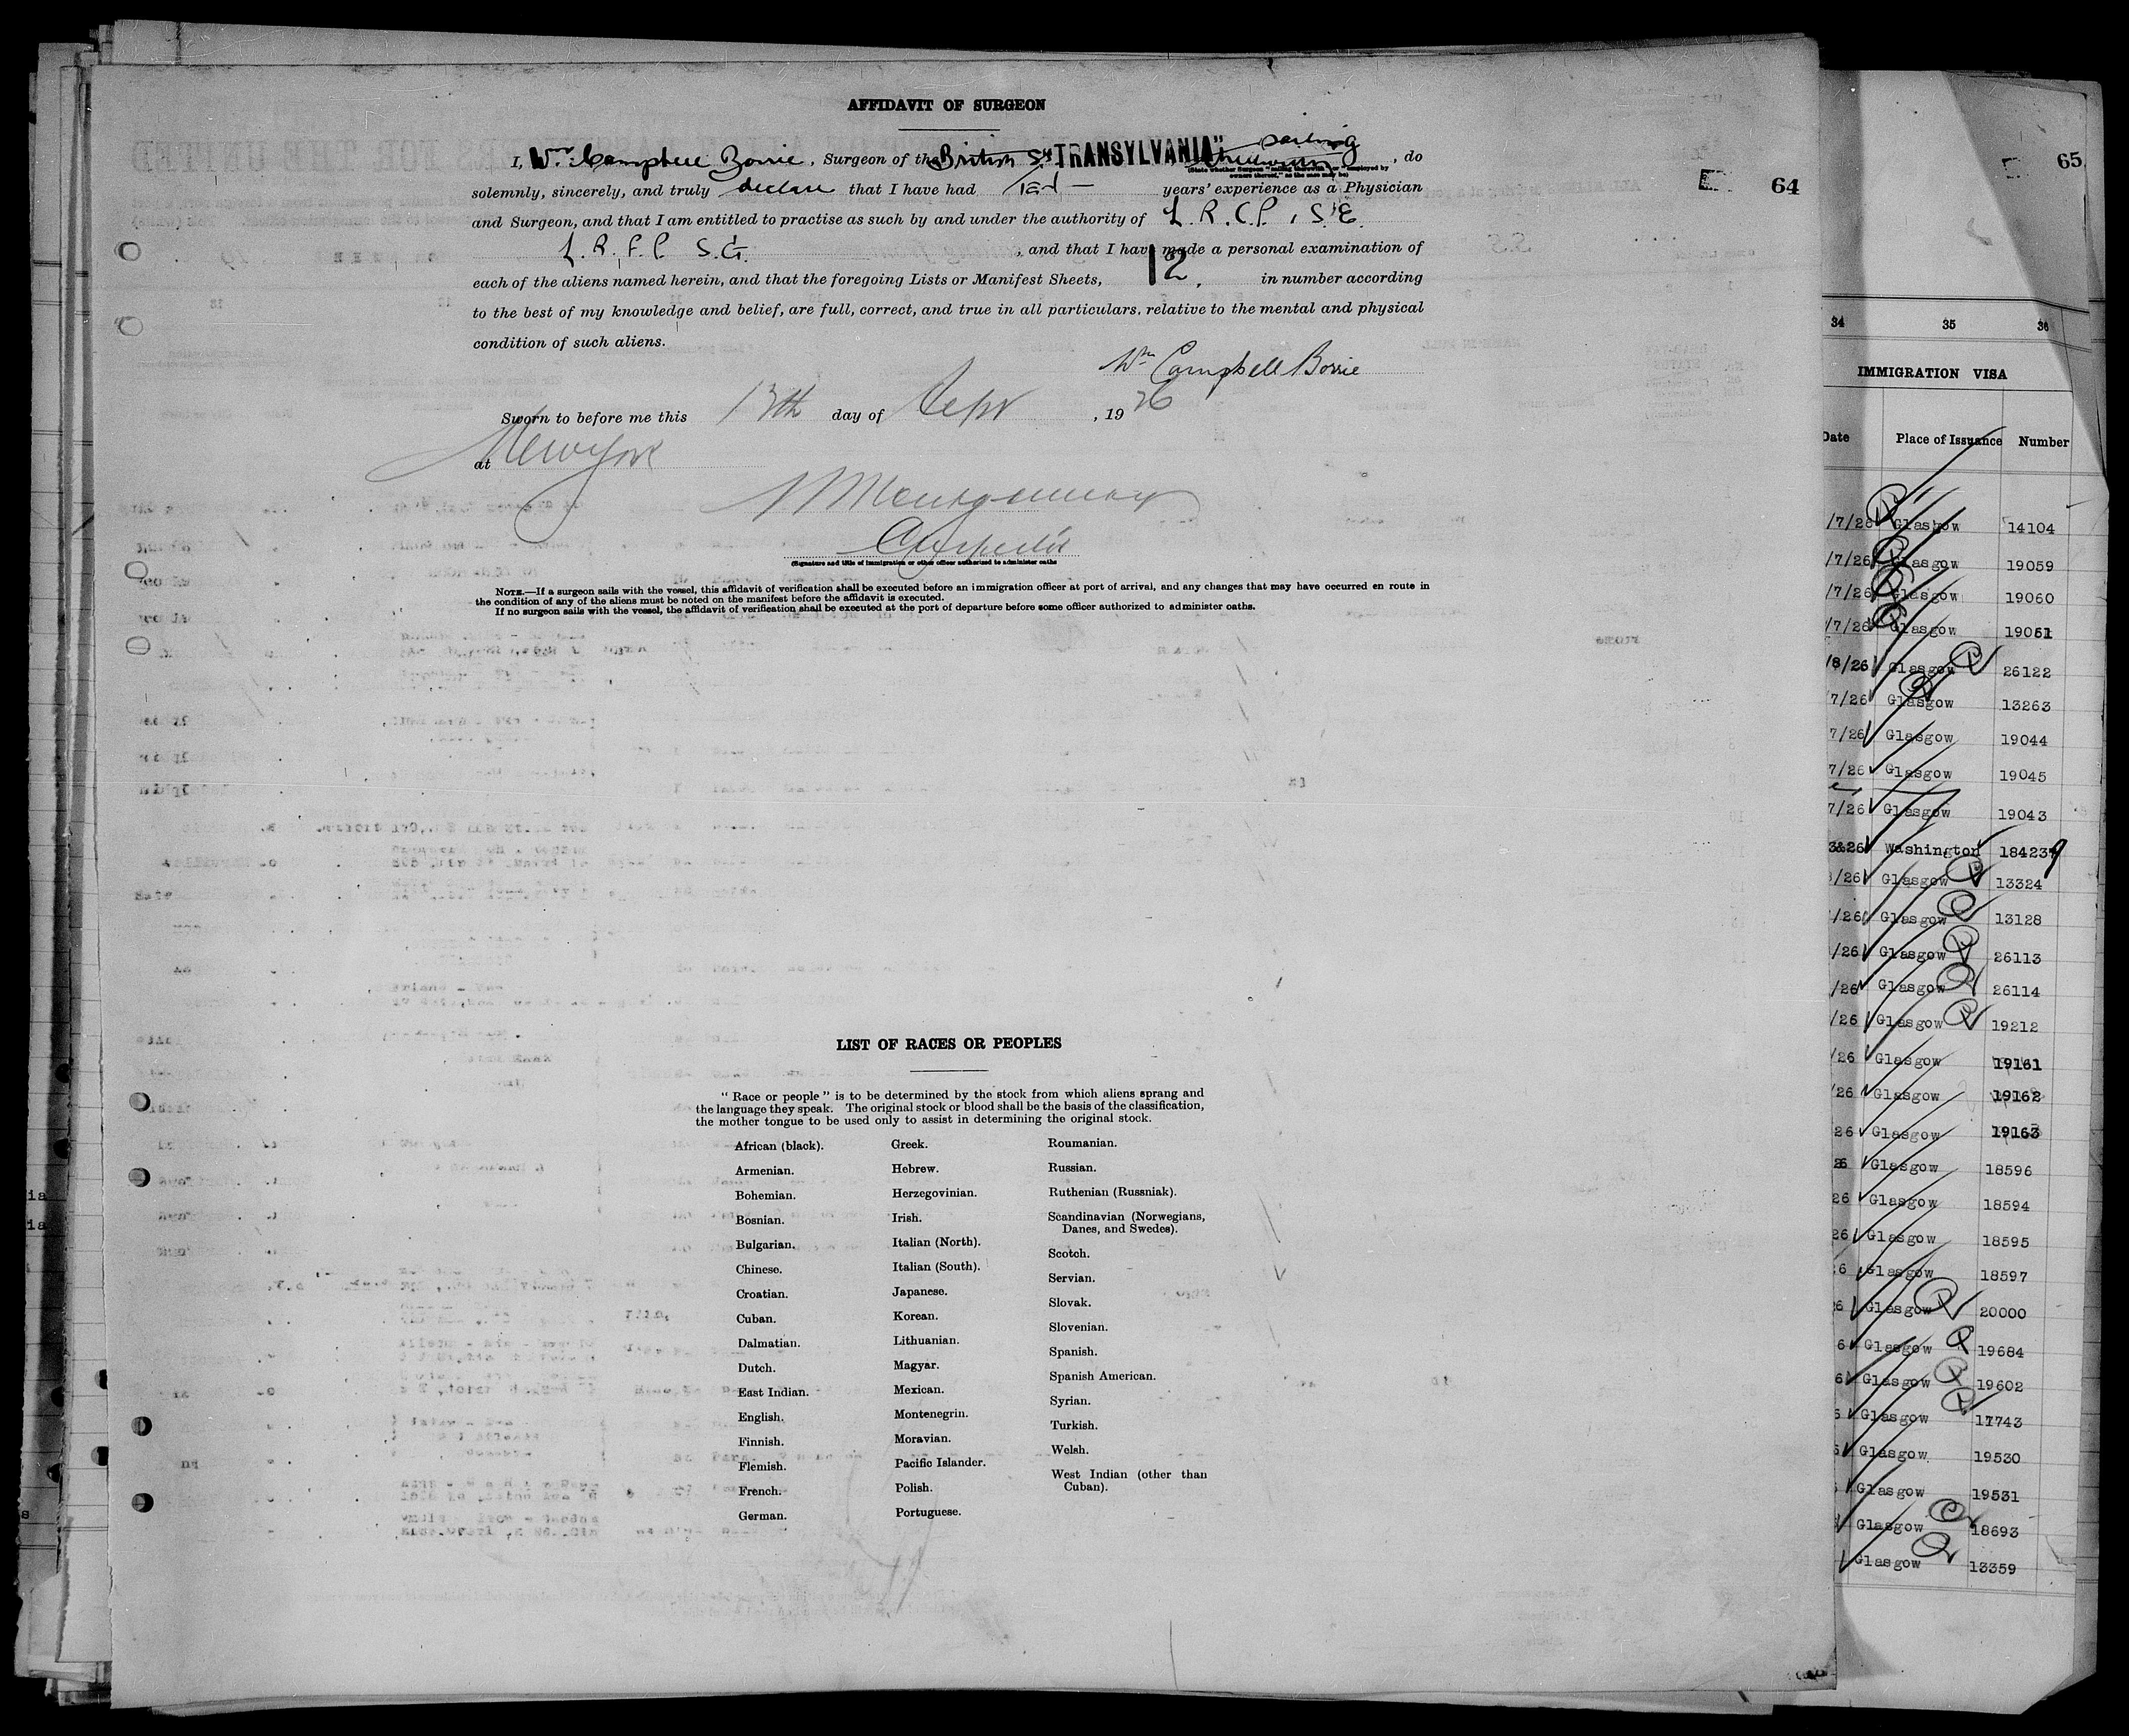 AFFIDAVIT OF SURGEON
I, Wm. Campbell Borrie, Surgeon of the British SS "TRANSYLVANIA" sailing therewith, do
(State whether Surgeon "sailing therewith" or "employed by owners thereof," as the case may be)
solemnly, sincerely, and truly declare that I have had years' experience as a Physician
and Surgeon, and that I am entitled to practise as such by and under the authority of L. R. C. P. , S. E.
L. R. F. P. S. G. , and that I have made a personal examination of
each of the aliens named herein, and that the foregoing Lists or Manifest Sheets, 12, in number according
to the best of my knowledge and belief, are full, correct, and true in all particulars, relative to the mental and physical
condition of such aliens.
Wm Campbell Borrie
Sworn to before me this 13th day of Sept , 1926
at New York
Montgomery
(Signature and title of immigration or other officer authorized to administer oaths
NOTE.—If a surgeon sails with the vessel, this affidavit of verification shall be executed before an immigration officer at port of arrival, and any changes that may have occurred en route in
the condition of any of the aliens must be noted on the manifest before the affidavit is executed.
If no surgeon sails with the vessel, the affidavit of verification shall be executed at the port of departure before some officer authorized to administer oaths.
LIST OF RACES OR PEOPLES
" Race or people " is to be determined by the stock from which aliens sprang and
the language they speak. The original stock or blood shall be the basis of the classification,
the mother tongue to be used only to assist in determining the original stock.
African (black).
Armenian.
Bohemian.
Bosnian.
Bulgarian.
Chinese.
Croatian.
Cuban.
Dalmatian.
Dutch.
East Indian.
English.
Finnish.
Flemish.
French.
German.
Greek.
Hebrew.
Herzegovinian.
Irish.
Italian (North).
Italian (South).
Japanese.
Korean.
Lithuanian.
Magyar.
Mexican.
Montenegrin.
Moravian.
Pacific Islander.
Polish.
Portuguese.
Roumanian.
Russian.
Ruthenian (Russniak).
Scandinavian (Norwegians,
Danes, and Swedes).
Scotch.
Servian.
Slovak.
Slovenian.
Spanish.
Spanish American.
Syrian.
Turkish.
Welsh.
West Indian (other than
Cuban).
E 64
E 65
34 35 36
IMMIGRATION VISA
Date Place of Issuance Number
/7/26 Glasgow 14104
/7/26 Glasgow 19059
/7/26 Glasgow 19060
/7/26 Glasgow 19061
/8/26 Glasgow 26122
7/26 Glasgow 13263
7/26 Glasgow 19044
7/26 Glasgow 19045
7/26 Glasgow 19043
26 Washington 184239
/26 Glasgow 13324
/26 Glasgow 13128
/26 Glasgow 26113
/26 Glasgow 26114
/26 Glasgow 19212
/26 Glasgow 19161
/26 Glasgow 19162
26 Glasgow 19163
26 Glasgow 18596
26 Glasgow 18594
26 Glasgow 18595
6 Glasgow 18597
6 Glasgow 20000
6 Glasgow 19684
6 Glasgow 19602
6 Glasgow 17743
Glasgow 19530
Glasgow 19531
Glasgow 18693
Glasgow 13359